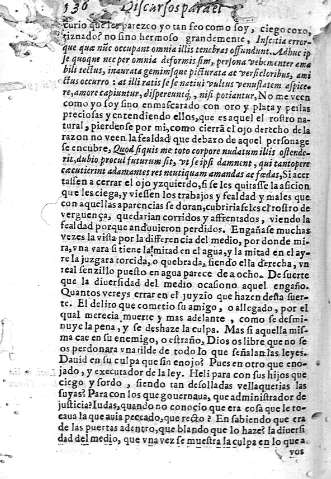 136 Discursos para el
curio que os parezco yo tan feo como soy, ciego coxo,
tiznado? no sino hermoso grandemente, Inscitia error-
que quæ nūc occupant omnia illis tenebras offundunt. Adhuc ip
se quoque nec per omnia deformis sim, persona vehementer ama
bili tectus, inaurata gemmisque picturata ac versicloribus, ami
ctus occurro: at illi ratis se se natiui vultus venustatem aspice-
re, amore capiuntur, dispereuntq, nisi potiantur, No me veen
como yo soy sino enmascarado con oro y plata y perlas
preciosas y entendiendo ellos, que es aquel el rostro na-
tural, pierdense por mi, como cierrā el ojo derecho de la
razon no veen la fealdad que debaxo de aquel personage
se encubre, Quod siquis me toto corpore nudatum illis ostende-
rit, dubio procul futurum sit, vt se ipsi damnent, qui tantopere
cæcutierint adamantes res mutiquam amandas ac fædas, Si acer
tassen a cerrar el ojo yzquierdo, si se les quitasse la aficion
que les ciega, y viessen los trabajos y fealdad y males que
con aquellas aparencias se doran, cubrirseles el rostro de
verguença, quedarian corridos y affrentados, viendo la
fealdad porque anduuieron perdidos. Engañase muchas
vezes la vista por la differencia del medio, por donde mi-
ra, vna vara si tiene la mitad en el agua, y la mitad en el ay-
re la juzgara torcida, o quebrada, siendo ella derecha, vn
real senzillo puesto en agua parece de a ocho. De suerte
que la diuersidad del medio ocasiono aquel engaño.
Quantos vereys errar en el juyzio que hazen desta suer-
te. El delito que cometio su amigo, o allegado, por el
qual merecia muerte y mas adelante, como se desmi-
nuye la pena, y se deshaze la culpa. Mas si aquella mis-
ma cae en su enemigo, o estraño, Dios os libre que no se
os perdonara vna tilde de todo lo que señalan las leyes.
Dauid en su culpa que sin enojo? Pues en otro que eno-
jado, y executador de la ley. Heli para con sus hijos que
ciego y sordo, siendo tan desolladas vellaquerias las
suyas? Para con los que gouernaua, que administrador de
justicia? Iudas, quando no conocio que era cosa que le to-
caua la que auia pecado, que recto? En sabiendo que era
de las puertas adentro, que blando que lo hazia la diuersi
dad del medio, que vna vez se muestra la culpa en lo que a
vos